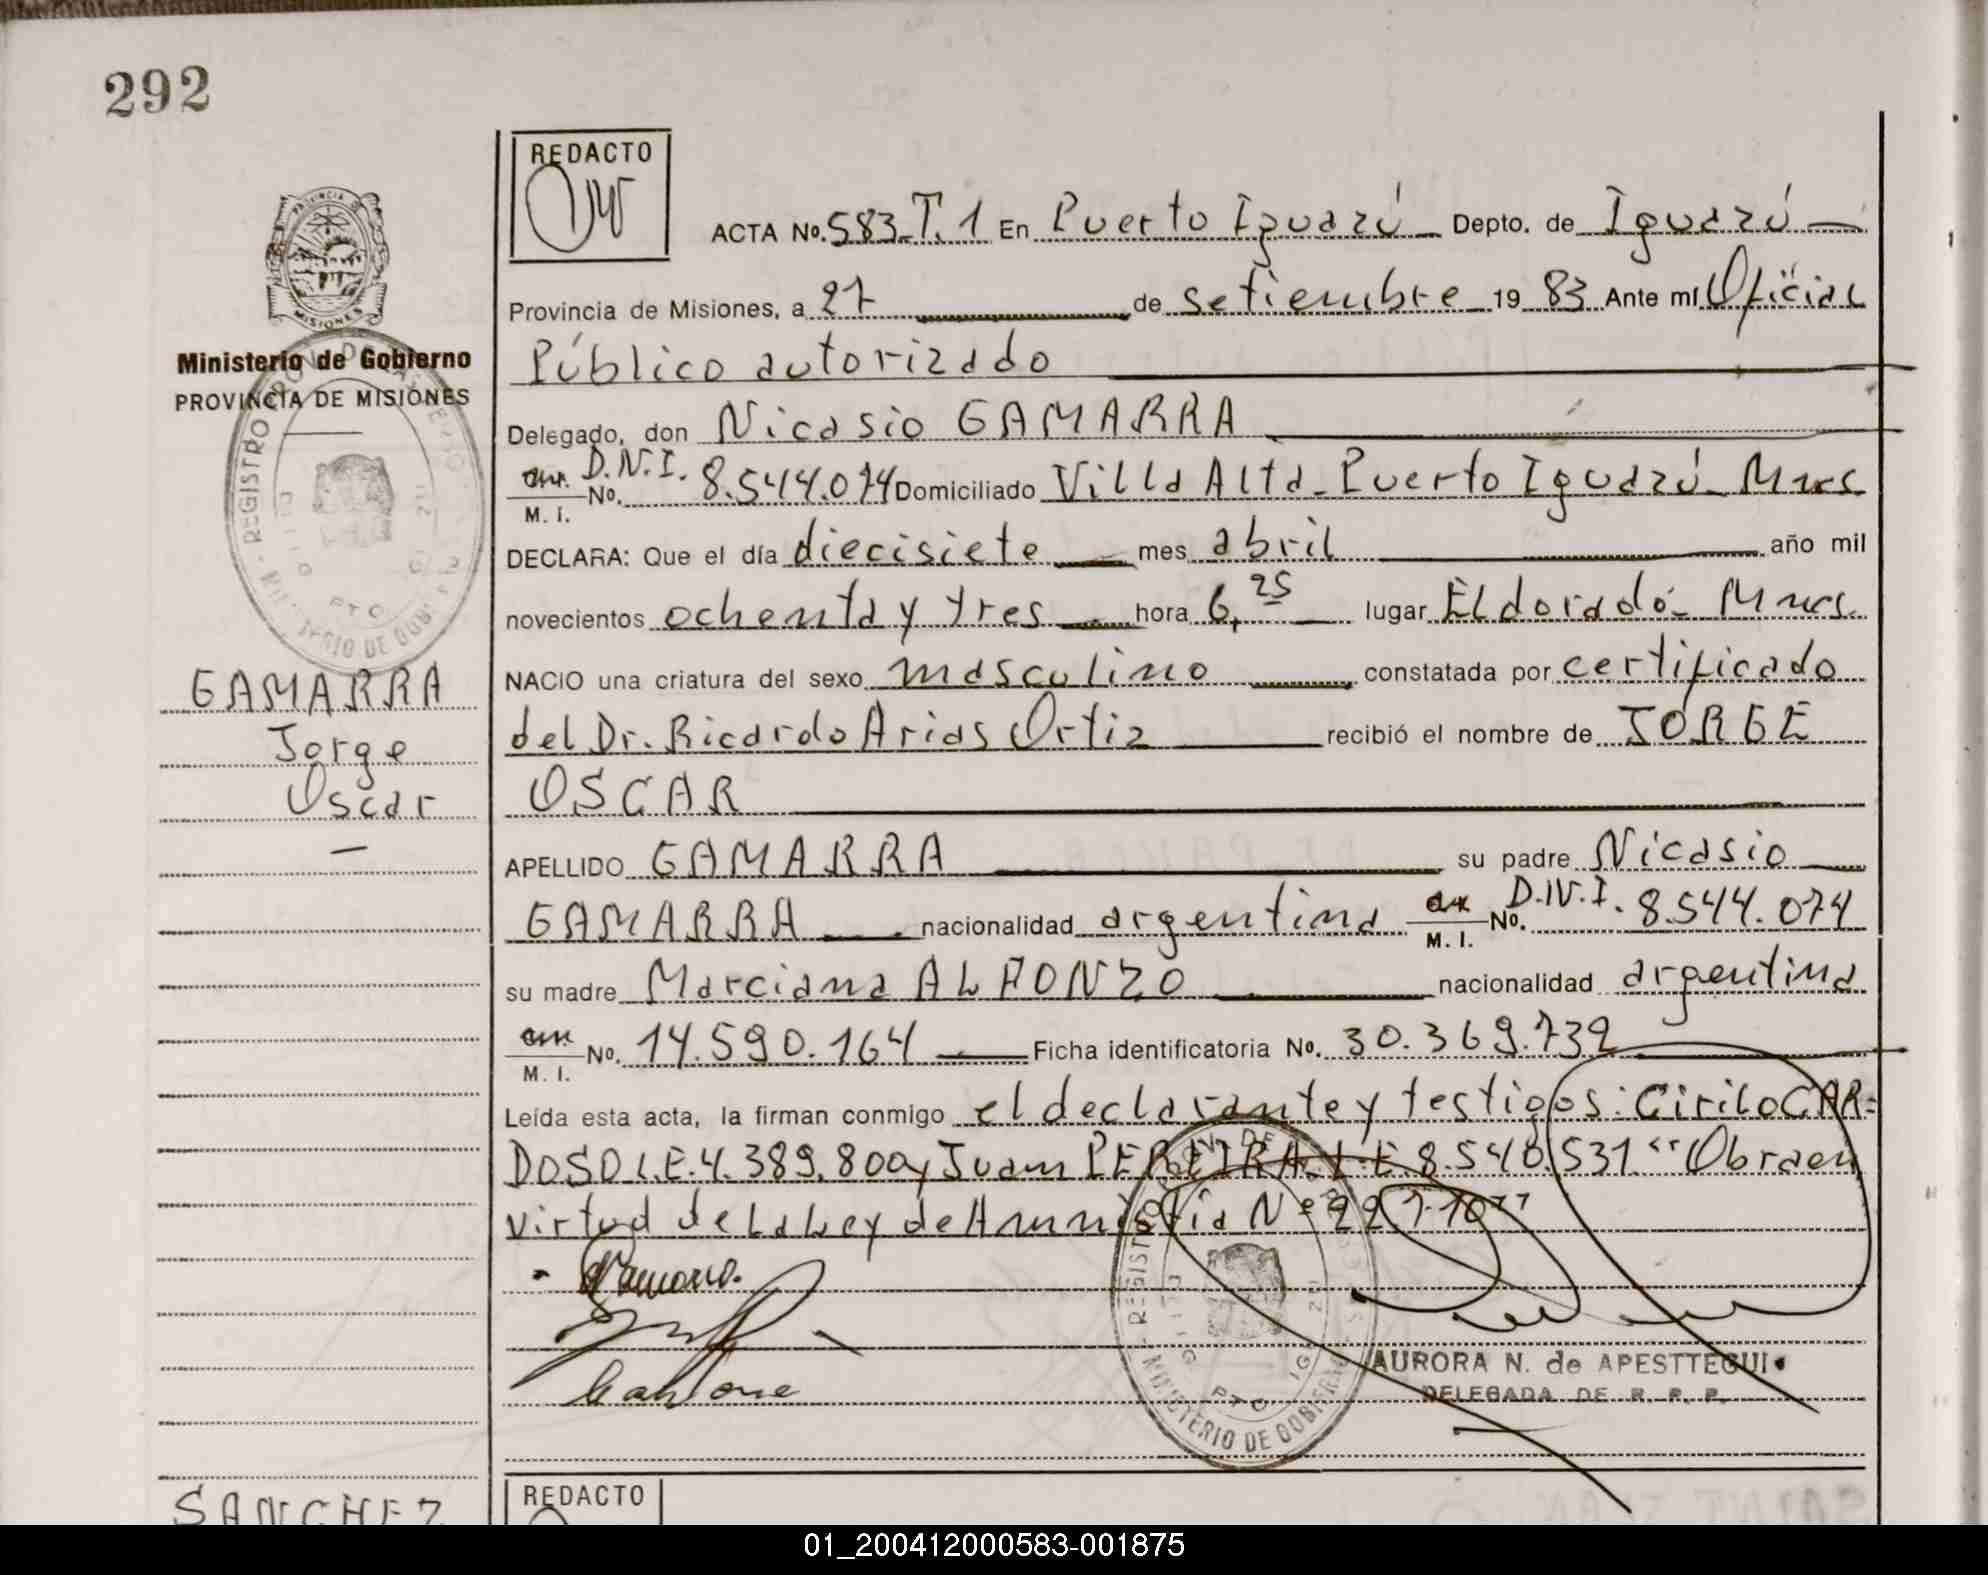 292
REDACTO
ACTA No. 583-T.1 En Puerto Iguazú Depto. de Iguazú
Provincia de Misiones, a 27 de setiembre 1983 Ante mí Oficial
Público autorizado
Ministerio de Gobierno
PROVINCIA DE MISIONES
Delegado, don Nicasio GAMARRA
D.N.I.
No. 8.544.074 Domiciliado Villa Alta - Puerto Iguazú - Mnes
M. I.
DECLARA: Que el día diecisiete mes abril año mil
novecientos ochenta y tres hora 6,25 lugar Eldorado - Mnes.
GAMARRA
Jorge
Oscar
NACIO una criatura del sexo masculino constatada por certificado
del Dr. Ricardo Arias Ortiz recibió el nombre de JORGE
OSCAR
APELLIDO GAMARRA su padre Nicasio
GAMARRA nacionalidad argentina M. I. No. D.N.I. 8.544.074
su madre Marciana ALFONZO nacionalidad argentina
M. I. No. 14.590.164 Ficha identificatoria No. 30.369.732
Leída esta acta, la firman conmigo el declarante y testigos: Cirilo CAR=
DOSO L.E. 4.389.800 y Juan PEREIRA L.E. 8.540.531 "Obra en
virtud de la Ley de Amnistía Nº 22.
AURORA N. de APESTTEGUI
DELEGADA DE R. P. P.
REGISTRO PROV. DE
MINISTERIO DE GOBIERNO
SANCHEZ
REDACTO
01_200412000583-001875